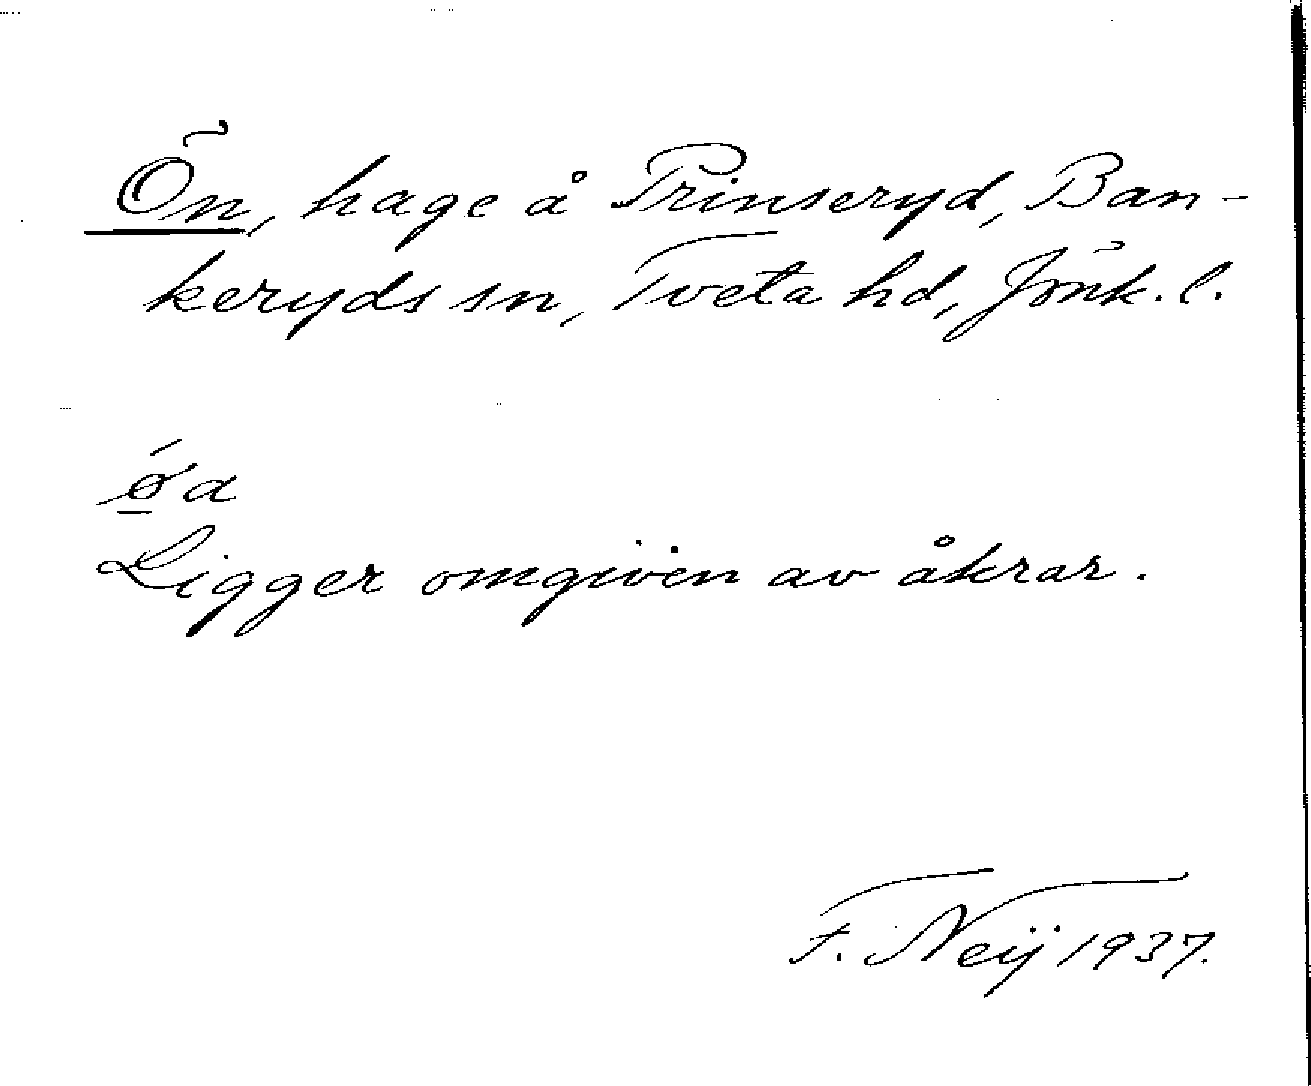 Ön, hage å Prinseryd, Ban-
keryds sn, Tveta hd, Jönk. l.
ǿa
Ligger omgiven av åkrar.
F. Neij 1937.